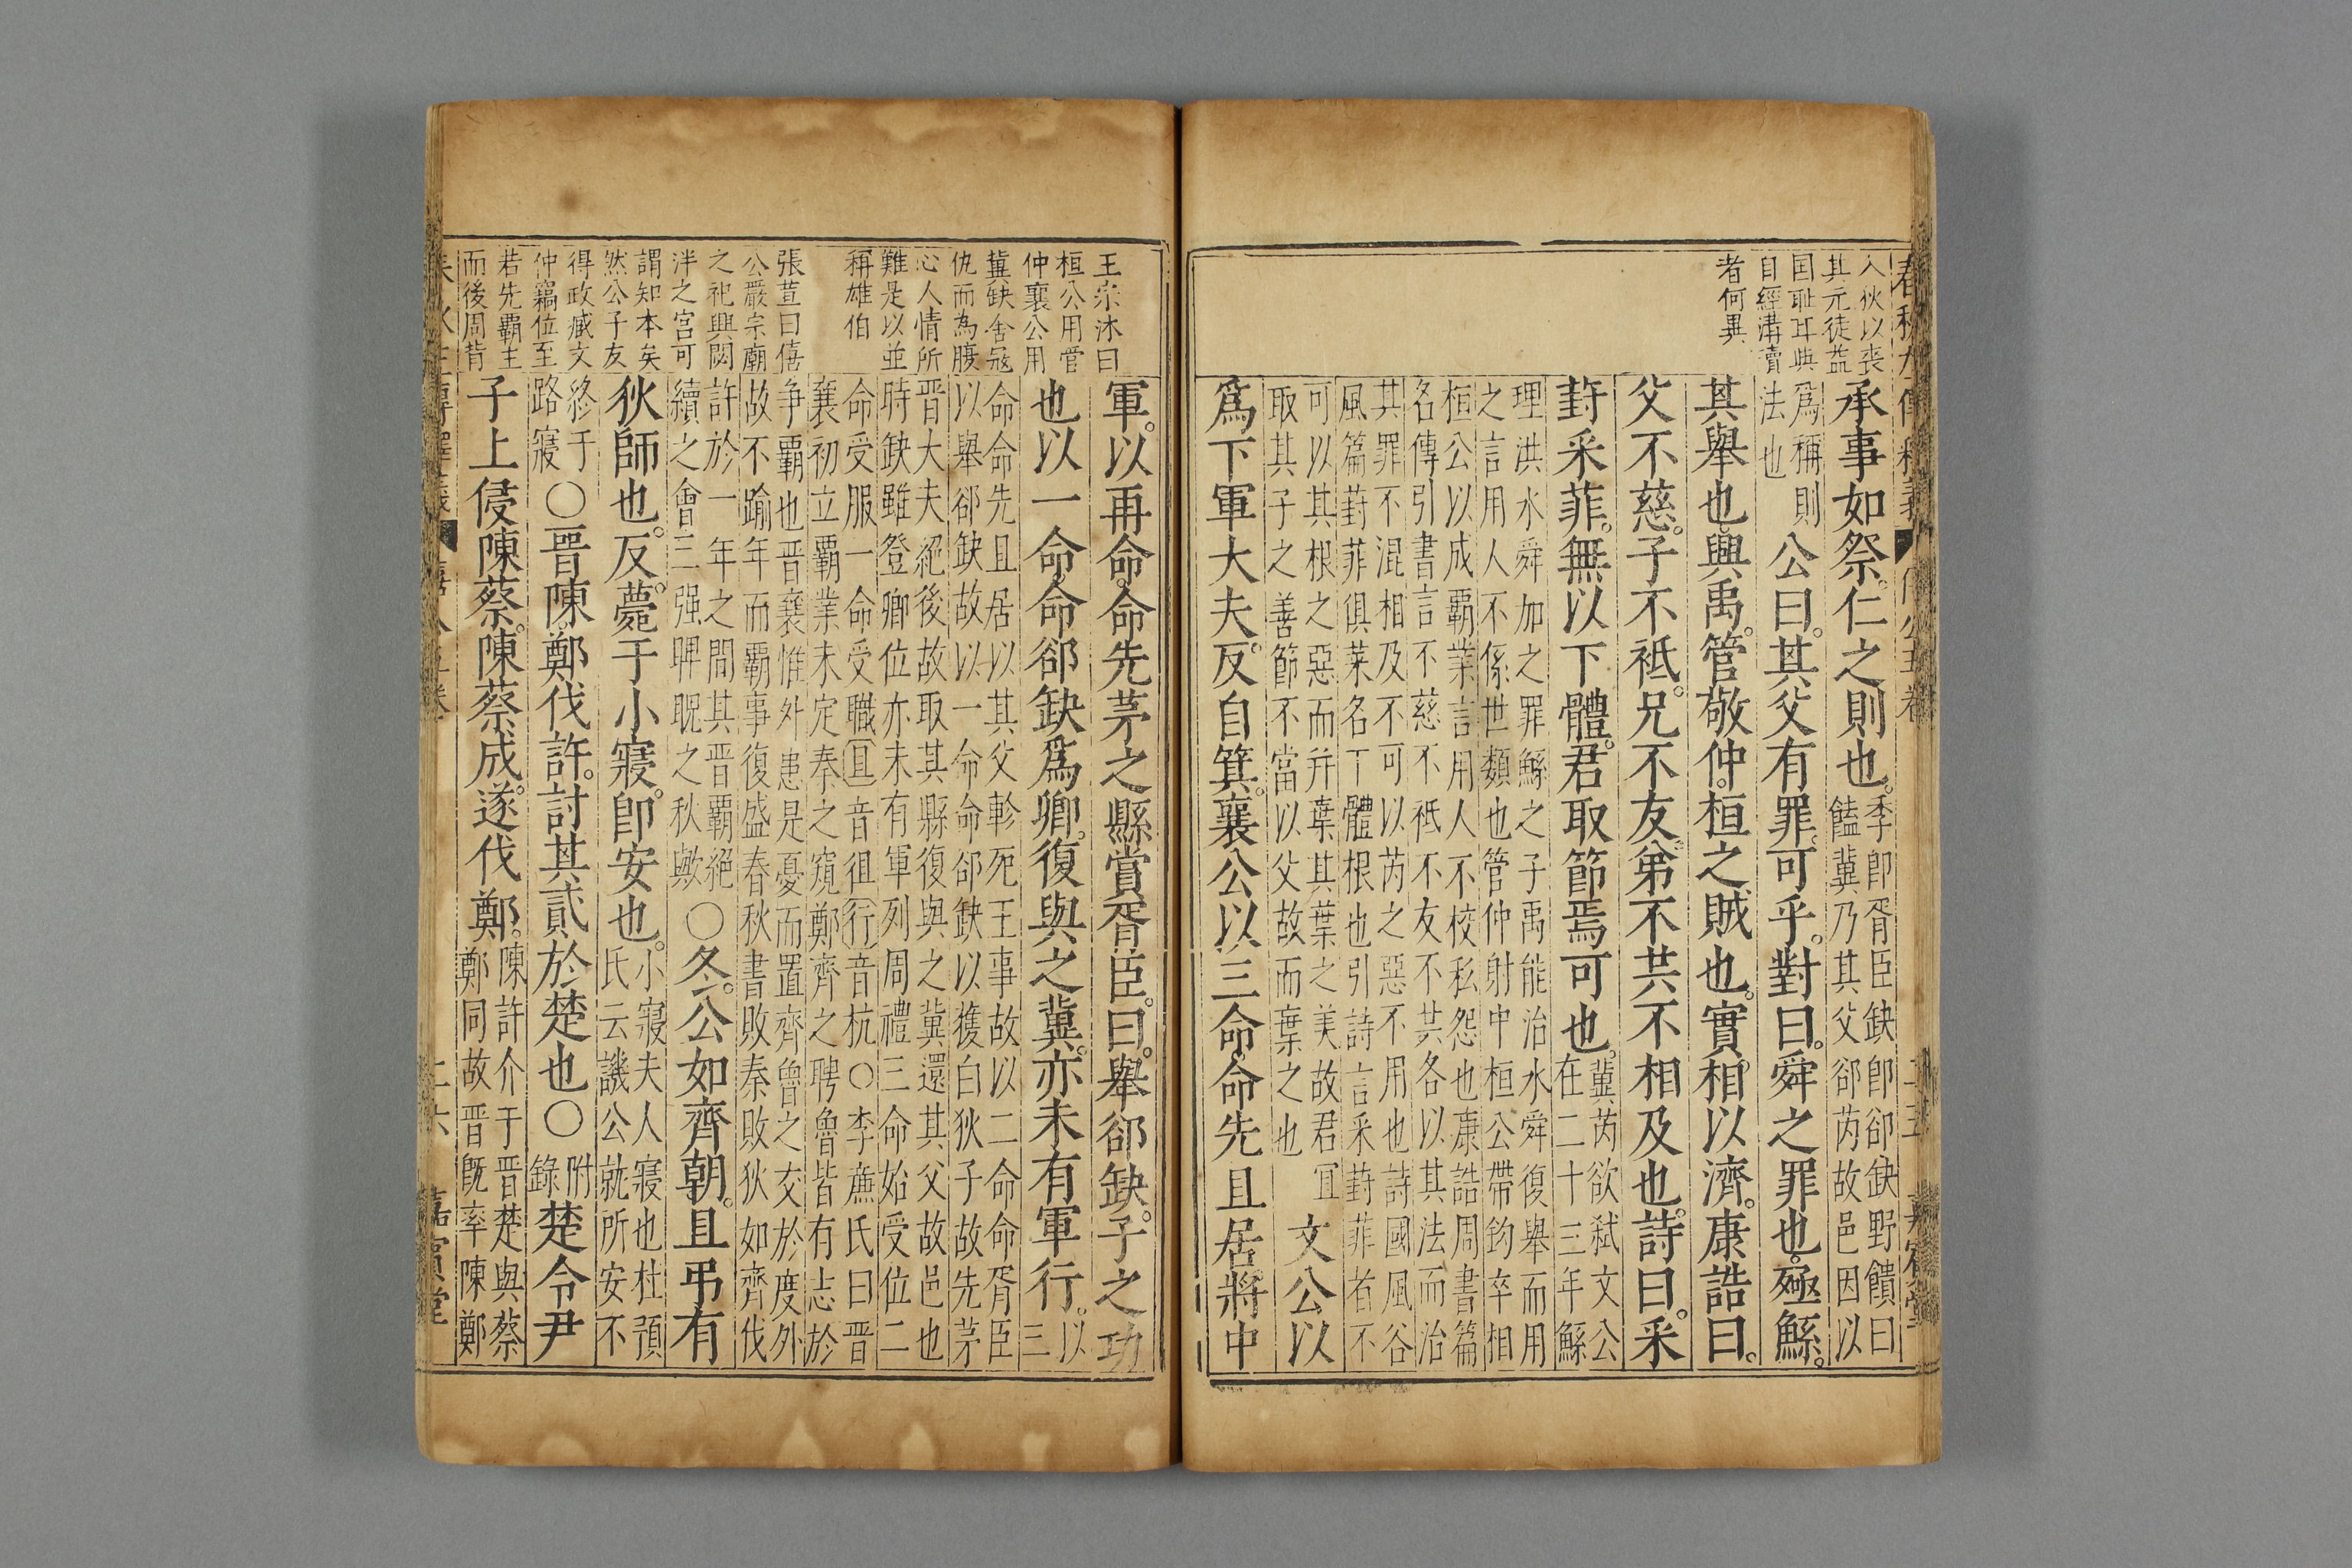 入狄以喪
其元徒益
国耻耳與
自經溝瀆
者何異
承事如祭。仁之則也。季卽胥臣缺卽郤缺野饋曰
饁冀乃其父郤芮故邑因以
爲稱則
法也公曰。其父有罪。可乎。對曰。舜之罪也。殛鯀。
其舉也。興禹。管敬仲。桓之賊也。實相以濟。康誥曰。
父不慈。子不祗。兄不友。弟不共。不相及也。詩曰。采
葑采菲。無以下體。君取節焉可也。冀芮欲弒文公
在二十三年鯀
理洪水舜加之罪鯀之子禹能治水舜復舉而用
之言用人不係世類也管仲射中桓公帶鈎卒相
桓公以成覇業言用人不校私怨也康誥周書篇
名傳引書言不慈不祗不友不共各以其法而治
其罪不混相及不可以芮之惡不用也詩國風谷
風篇葑菲俱菜名下體根也引詩言采葑菲者不
可以其根之惡而幷葉其葉之美故君冝
取其子之善節不當以父故而棄之也文公以
爲下軍大夫。反自箕。襄公以三命。命先且居。將中
王宗沐曰
桓公用管
仲襄公用
冀缺舍寇
仇而為腹
心人情所
難是以並
稱雄伯
張萱曰僖
公嚴宗廟
之祀興閟
泮之宫可
謂知本矣
然公子友
得政臧文
仲竊位至
若先覇主
而後周背
軍。以再命。命先茅之縣賞胥臣。曰。舉郤缺。子之功
也以一命。命郤缺爲卿。復與之冀。亦未有軍行。以三
命命先且居以其父軫死王事故以二命命胥臣
以舉郤缺故以一命命郤缺以獲白狄子故先茅
晋大夫絕後故取其縣復與之冀還其父故邑也
時缺雖登卿位亦未有軍列周禮三命始受位二
命受服一命受職且音徂行音杭〇李廉氏曰晋
襄初立覇業未定奉之窺鄭齊之聘魯皆有志於
争覇也晋襄惟外患是憂而置齊魯之交於度外
故不踰年而覇事復盛春秋書敗秦敗狄如齊伐
許於一年之間其晋覇絕
續之會三强睥睨之秋歟〇冬。公如齊朝。且弔有
狄師也。反。薨于小寢。卽安也。小寢夫人寢也杜預
氏云譏公就所安不
終于
路寢〇晋陳鄭伐許。討其貳於楚也〇附
錄楚令尹
子上侵陳蔡。陳蔡成。遂伐鄭。陳許介于晋楚與蔡
鄭同故晋旣率陳鄭